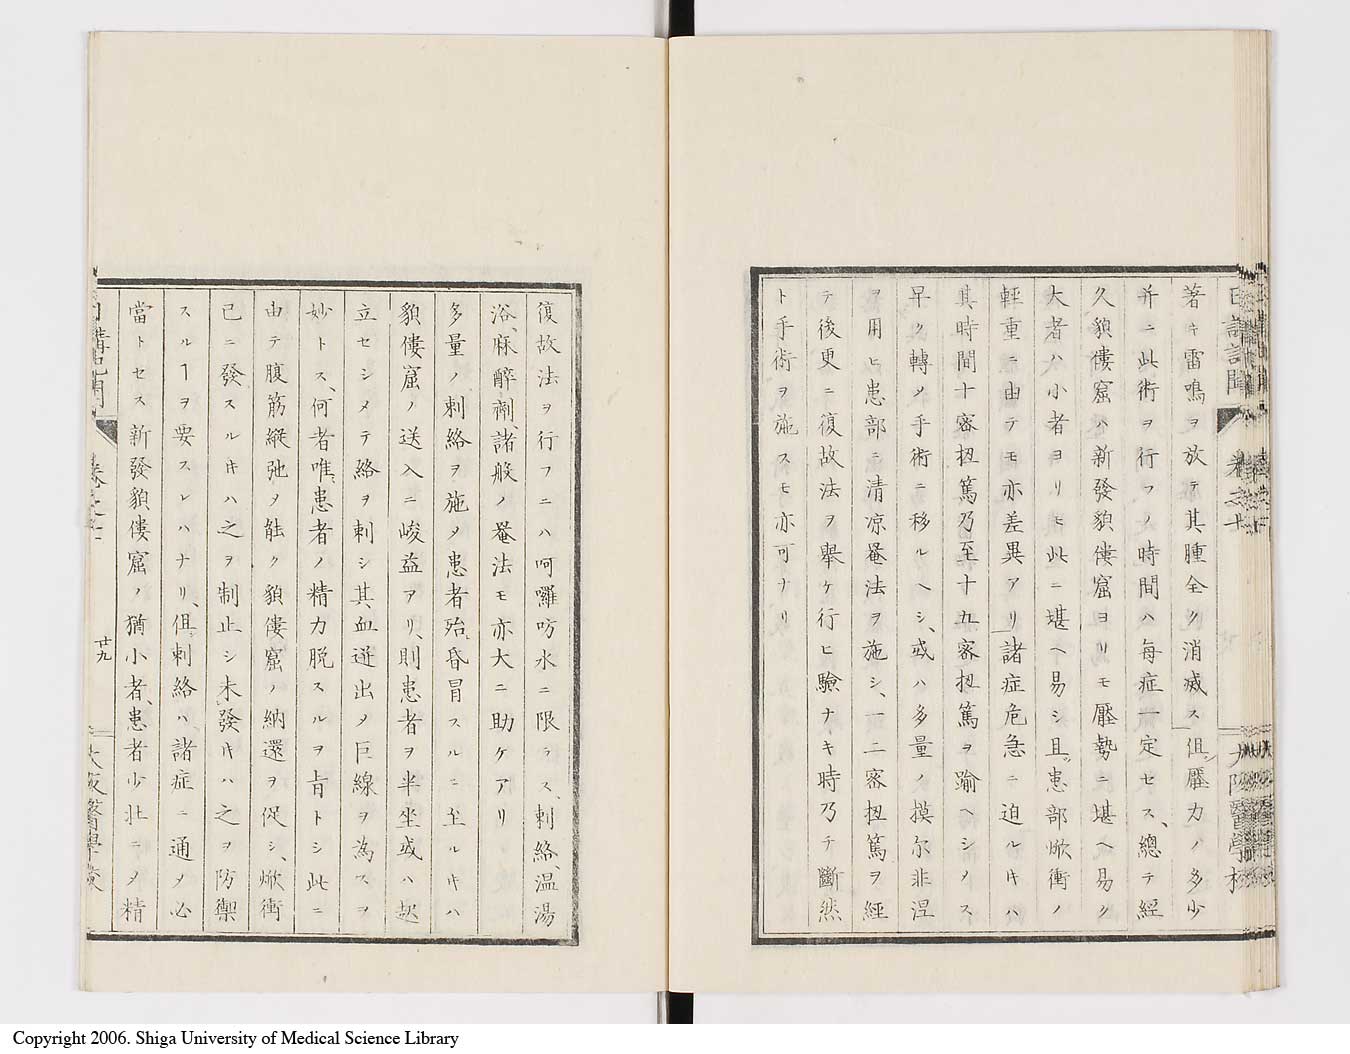 著キ雷鳴ヲ放テ其腫全ク消滅ス但壓力ノ多少
并ニ此術ヲ行フノ時間ハ毎症一定セス、總テ經
久貌僂窟ハ新發貌僂窟ヨリモ壓勢ニ堪ヘ易ク
大者ハ小者ヨリモ此ニ堪ヘ易シ且患部焮衝ノ
輕重ニ由テモ亦差異アリ諸症危急ニ迫ルキハ
其時間十密扭篤乃至十九密扭篤ヲ踰ヘシノス
早ク轉ノ手術ニ移ルヘシ、或ハ多量ノ摸尓非涅
ヲ用ヒ患部ニ清凉罨法ヲ施シ、一二密扭篤ヲ經
テ後更ニ復故法ヲ擧ケ行ヒ驗ナキ時乃チ斷然
ト手術ヲ施スモ亦可ナリ
復故法ヲ行フニハ呵囉吩水ニ限ラス、刺絡、温湯
浴、麻醉劑、諸般ノ罨法モ亦大ニ助ケアリ
多量ノ刺絡ヲ施ノ患者殆昏冒スルニ至ルキハ
貌僂窟ノ送入ニ峻益アリ、則患者ヲ半坐或ハ起
立セシメテ絡ヲ刺シ其血迸出ノ巨線ヲ為スヲ
妙トス、何者唯患者ノ精力脱スルヲ旨トシ此ニ
由テ腹筋縱弛ノ能ク貌僂窟ノ納還ヲ促シ、焮衝
已ニ發スルキハ之ヲ制止シ未發キハ之ヲ防禦
スルヿヲ要スレハナリ、但刺絡ハ諸症ニ通ノ必
當トセス新發貌僂窟ノ猶小者、患者少壯ニノ精
日講記聞
卷之十
廿九
大阪醫學校
Copyright 2006. Shiga University of Medical Science Library